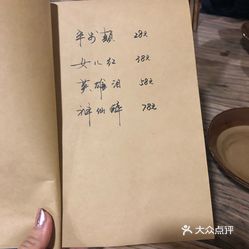 半步颠 28元
女儿红 38元
英雄泪 58元
神仙醉 78元
大众点评